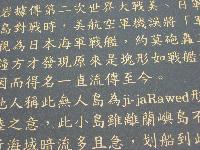 岩據傳第二次世界大戰美、日
島對戰時，美航空軍機誤將「
視為日本海軍戰艦，約莫砲轟
鐘方才發現原來是塊形如戰艦
因而得名一直流傳至今。
他人稱此無人島為ji-jaRawed形
陸之意，此小島雖離蘭嶼島不
近海域暗流多且急，划船到此